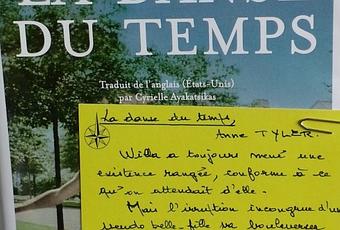 LA DANSE
DU TEMPS
Traduit de l'anglais (États-Unis)
par Cyrielle Ayakatsikas
La danse du temps,
Anne TYLER.
Willa a toujours mené une
existence rangée, conforme à ce
qu'on attendait d'elle.
Mais l'irruption incongrue d'un
pseudo belle-fille va bouleverser